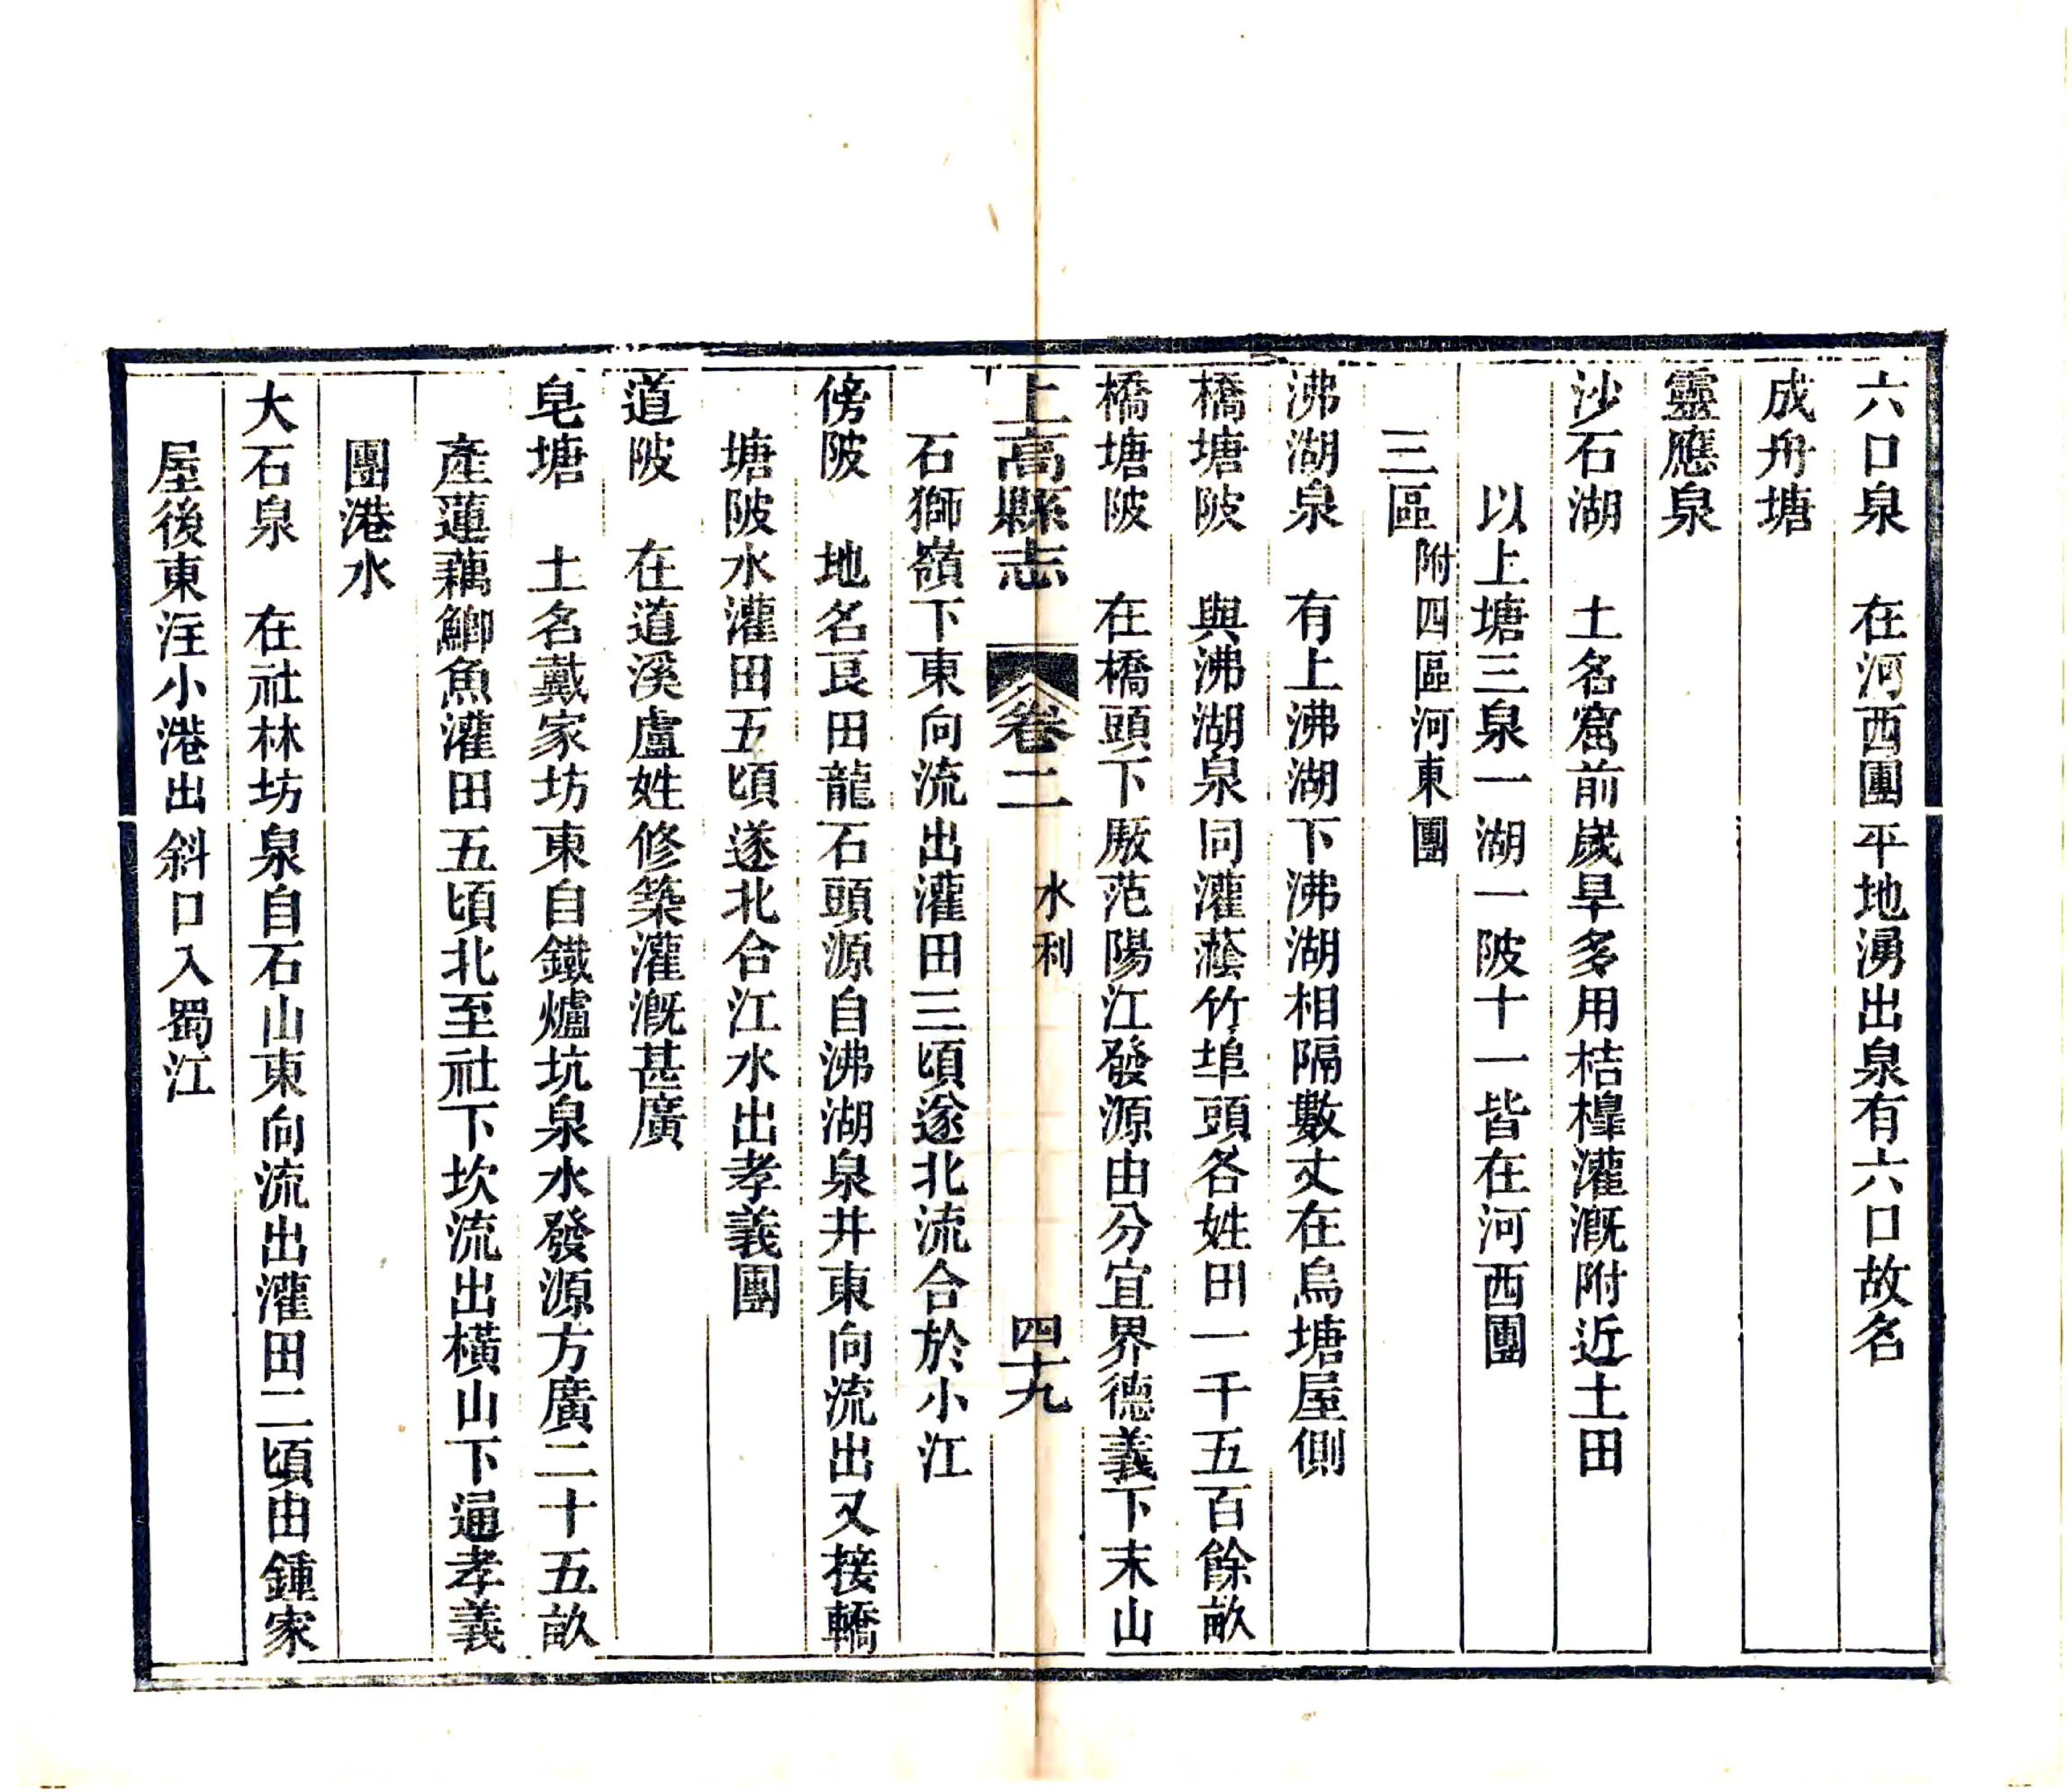 六口泉　在河西團平地湧出泉有六口故名
成舟塘
靈應泉
沙石湖　土名窩前歲旱多用桔槹灌溉附近土田
以上塘三泉一湖一陂十一皆在河西團
三區附四區河東團
沸湖泉　有上沸湖下沸湖相隔數丈在烏塘屋側
橋塘陂　與沸湖泉同灌蔭竹埠頭各姓田一千五百餘畝
橋塘陂　在橋頭下厫范陽江發源由分宜界德義下末山
上高縣志　卷二　水利　四十九
石獅嶺下東向流出灌田三頃遂北流合於小江
傍陂　地名艮田龍石頭源自沸湖泉井東向流出又接轎
塘陂水灌田五頃遂北合江水出孝義團
道陂　在道溪盧姓修築灌溉甚廣
皂塘　土名戴家坊東自鐵爐坑泉水發源方廣二十五畝
產蓮藕鯽魚灌田五頃北至社下坎流出橫山下通孝義
團港水
大石泉　在社林坊泉自石山東向流出灌田二頃由鍾家
屋後東注小港出斜口入蜀江